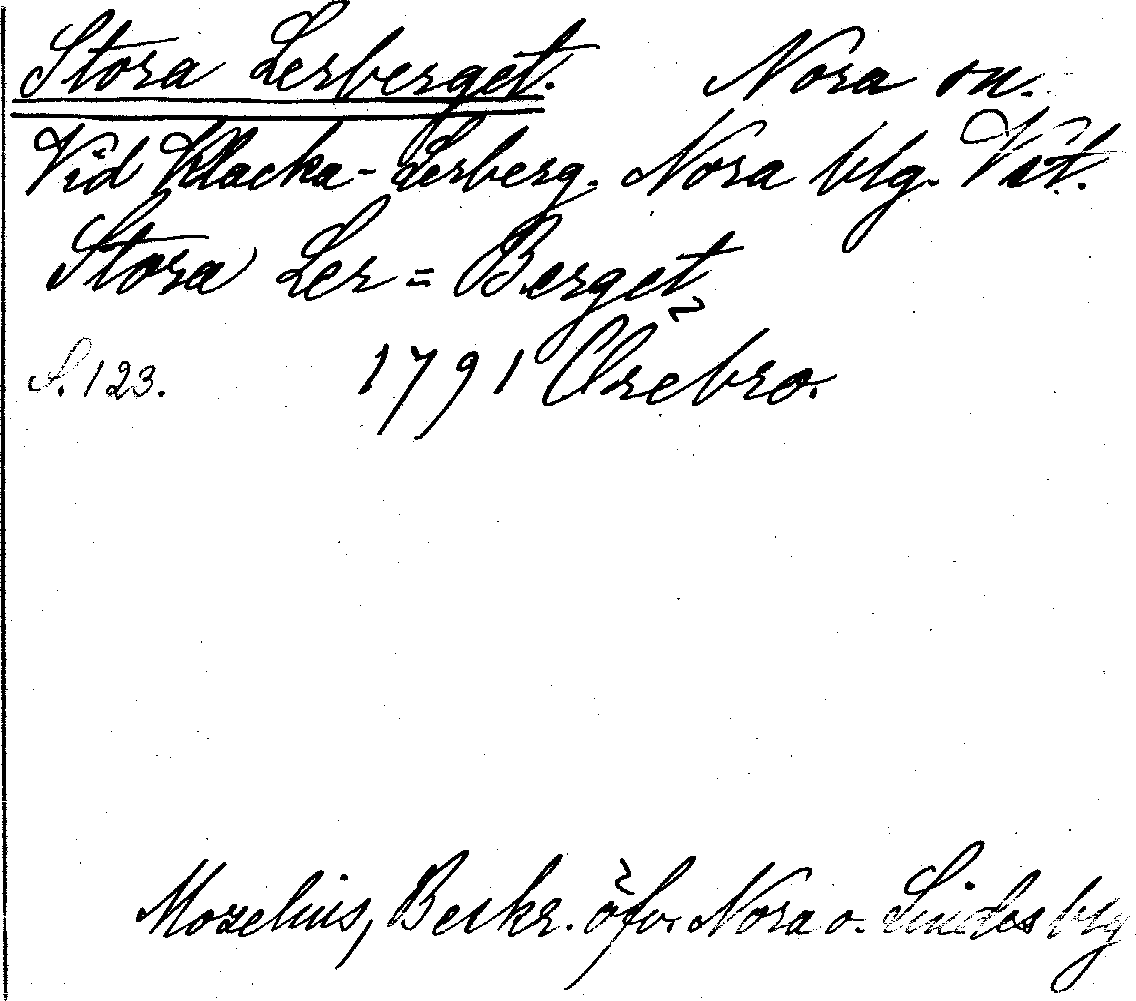 Stora Lerberget. Nora sn.
Vid Klacka-Lerberg, Nora blg. Vstm.
Stora Ler=Berget
S. 123. 1791 Örebro.
Mozelius, Beskr. öfv. Nora o. Lindes blg